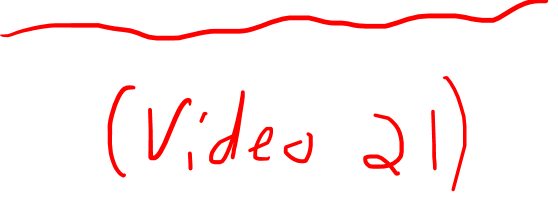 (Video 21)